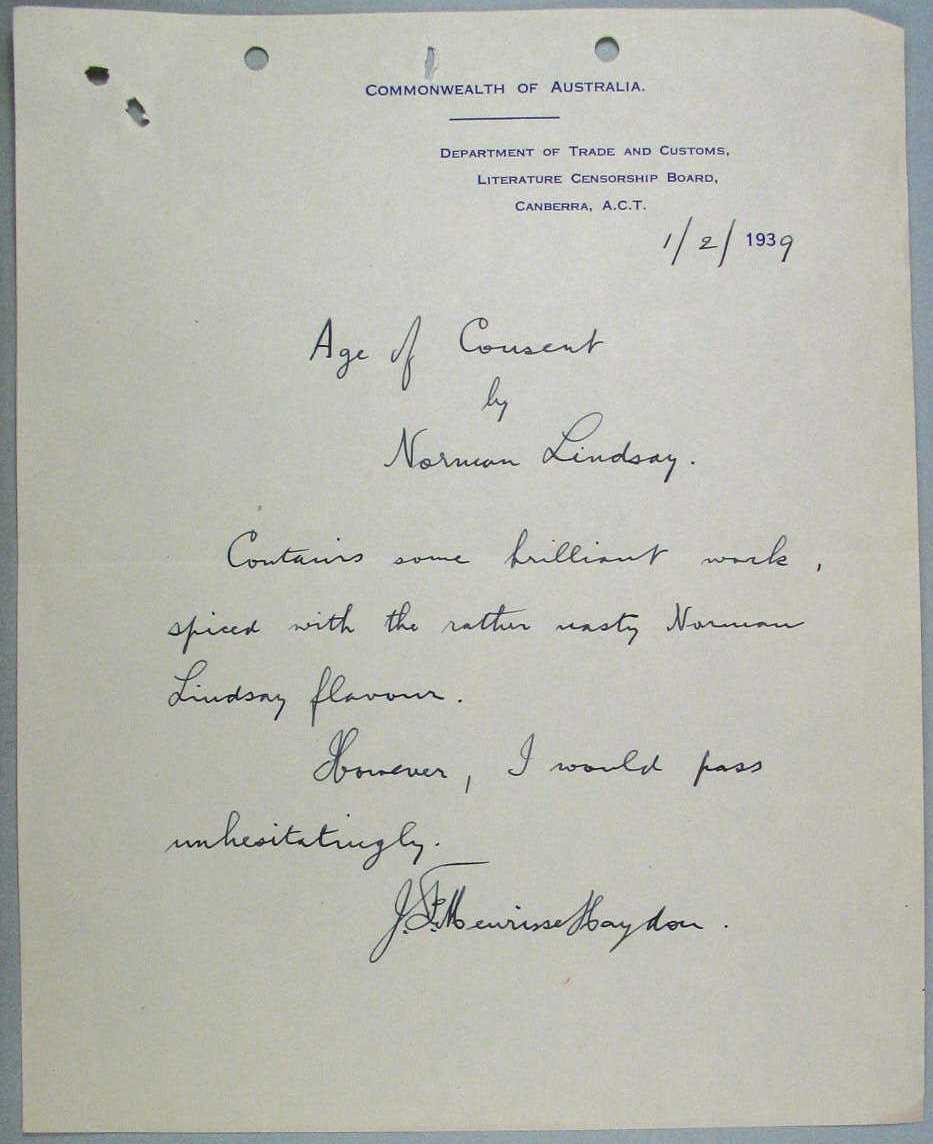 COMMONWEALTH OF AUSTRALIA.
DEPARTMENT OF TRADE AND CUSTOMS,
LITERATURE CENSORSHIP BOARD,
CANBERRA, A.C.T.
1/2/1939
Age of Consent
by
Norman Lindsay.
Contains some brilliant work,
spiced with the rather nasty Norman
Lindsay flavour.
However, I would pass
unhesitatingly.
J.F. Meurisse Haydon.